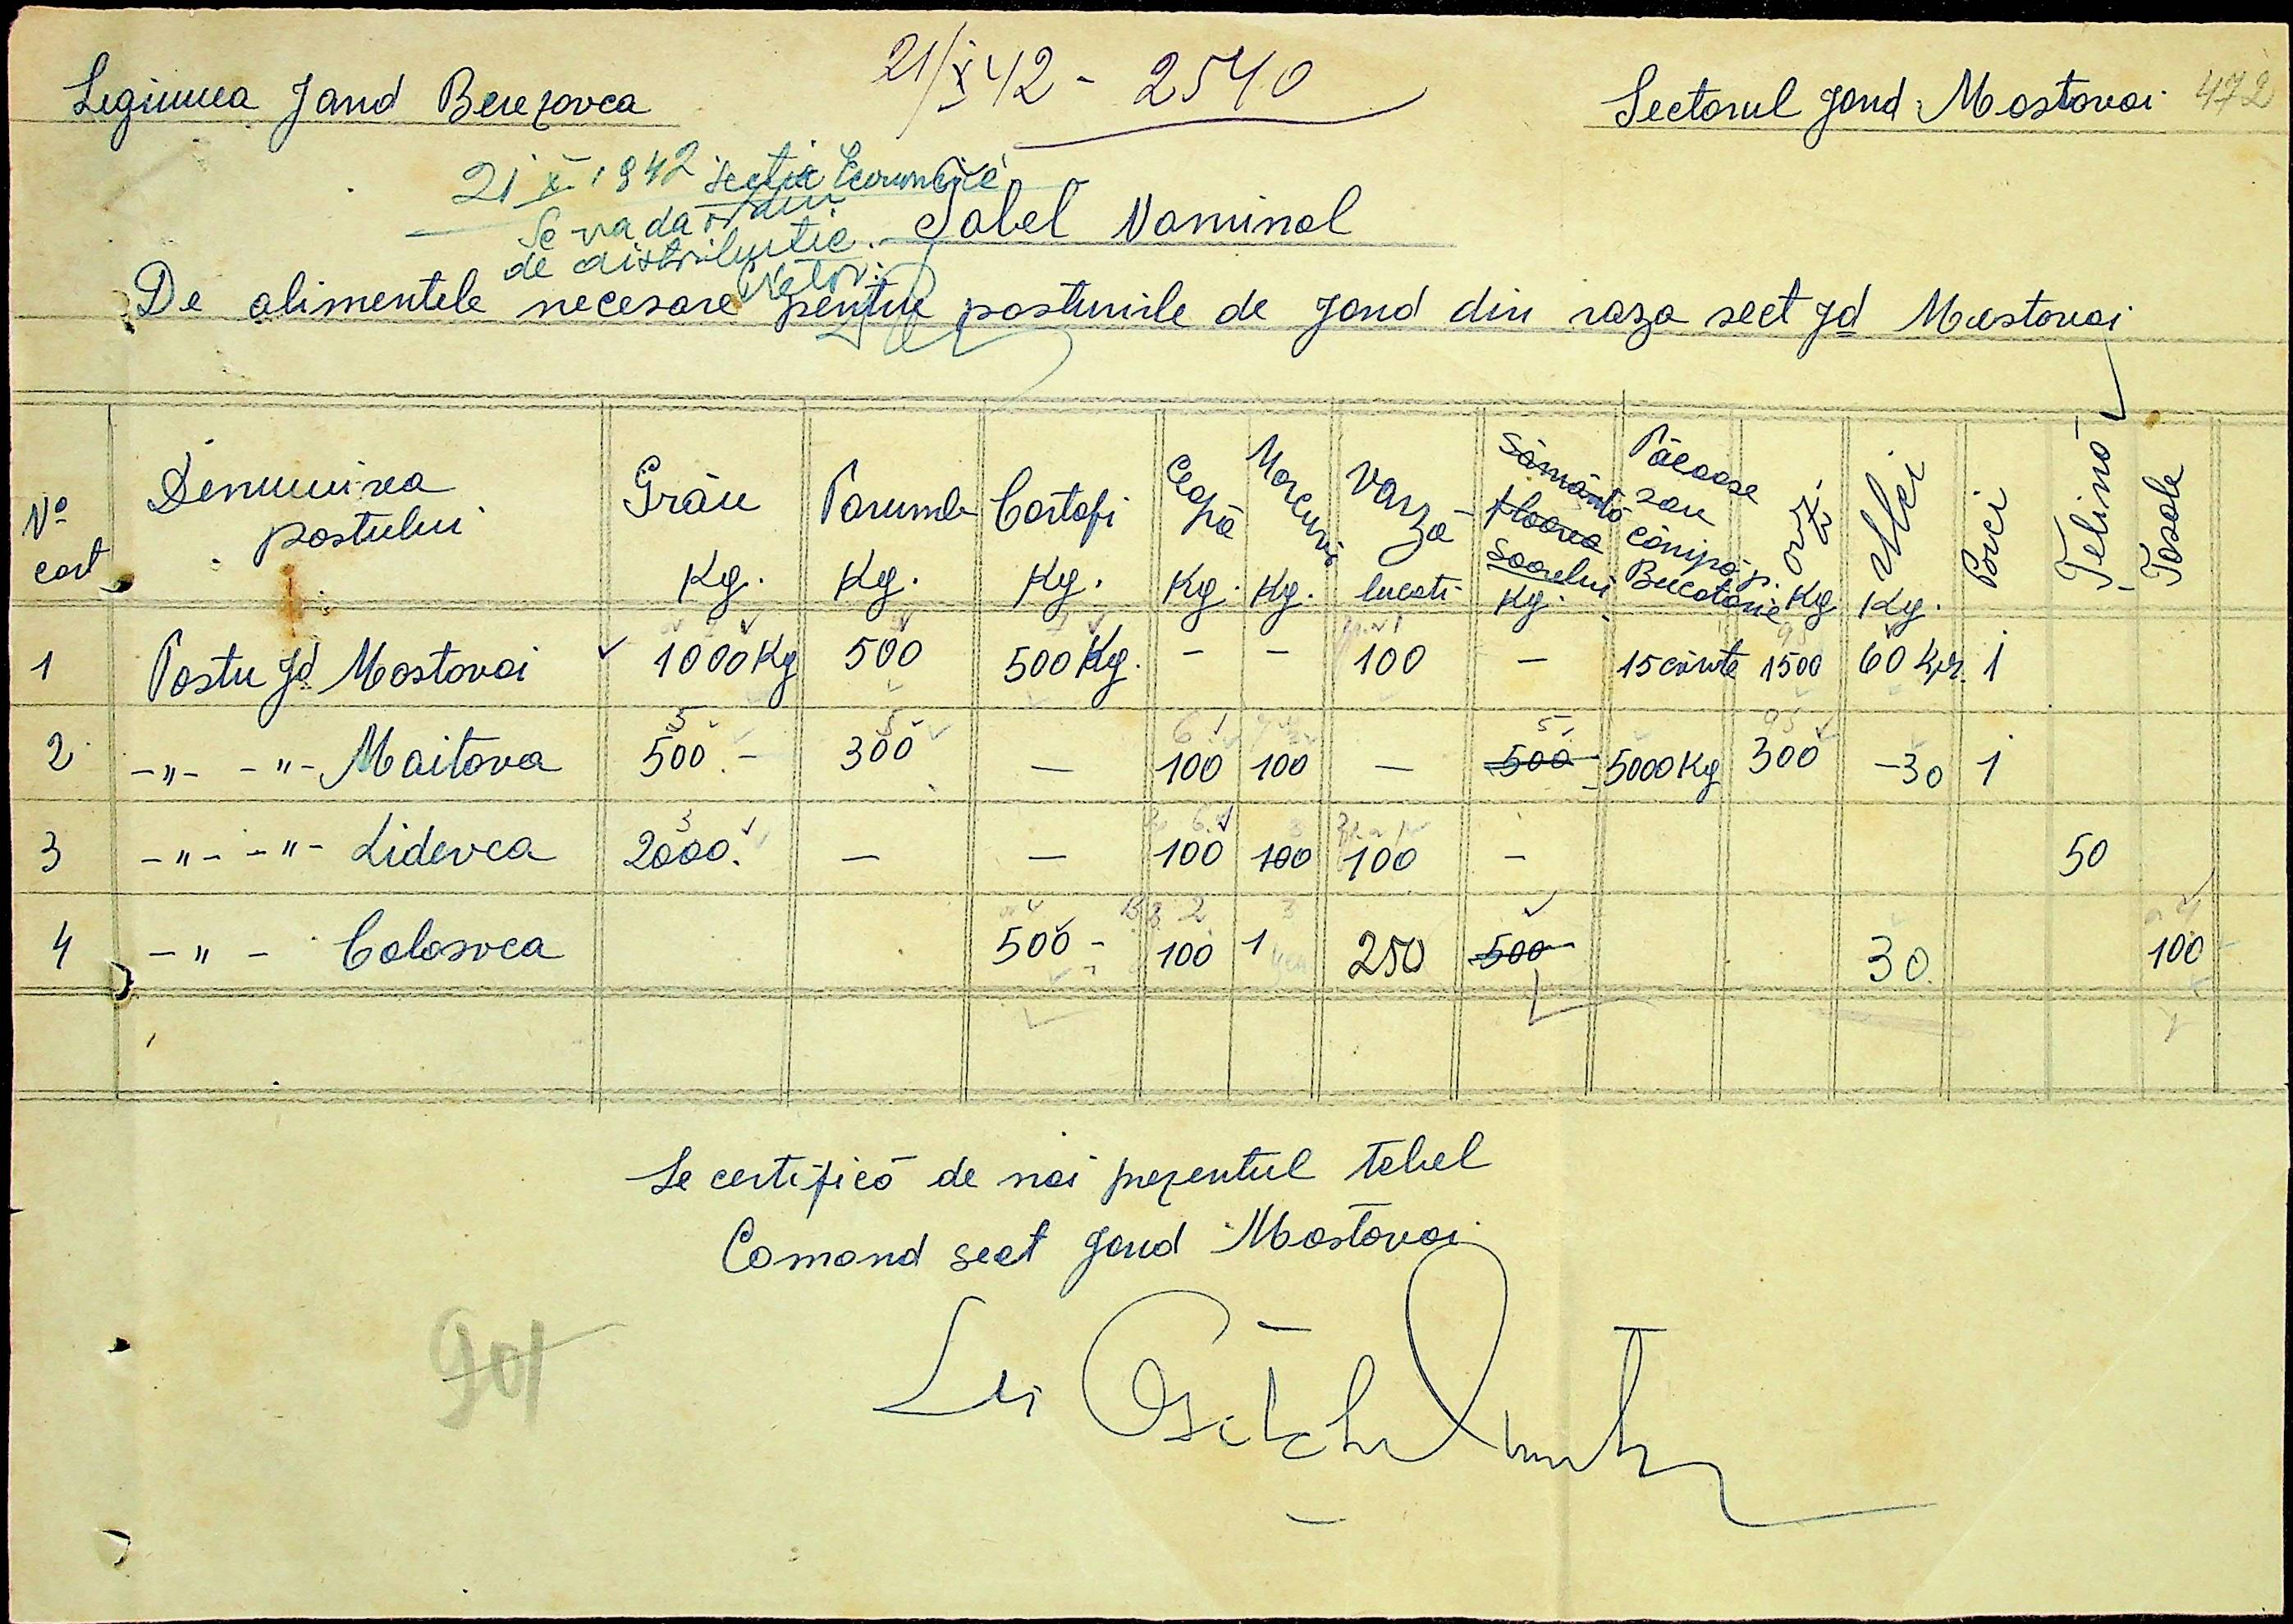 21/X 42 - 2540
Legiunea Jand Berezovca
Sectorul Jand Mostovoi 472
21 X 1942 Secția Economică
Se va da ordin
de distribuție.
Tabel Nominal
De alimentele necesare pentru posturile de Jand din raza sect Jd Mostovoi
No cort | Denumirea postului | Grâu Kg. | Porumb Kg. | Cartofi Kg. | Ceapă Kg. | Morcuvi Kg. | Varză bucati | Sămânță floarea soarelui Kg. | Păioase sau cânipă p. Bucatarie | orz Kg | Ulei Kg. | Porci | Țelină | Fasole
1 Postu Jd Mostovoi 1000 Kg 500 500 Kg. - - 100 - 15 cărute 1500 60 Kgr. 1
2 -"- -"- Maitova 500.- 300 - 100 100 - 500 5000 Kg 300 -30 1
3 -"- -"- Lidevca 2000. - - 100 100 100 - 50
4 -"- Colosvca 500 - 100 1 250 500 30. 100
Se certifică de noi prezentul tabel
Comand sect Jand Mostovoi